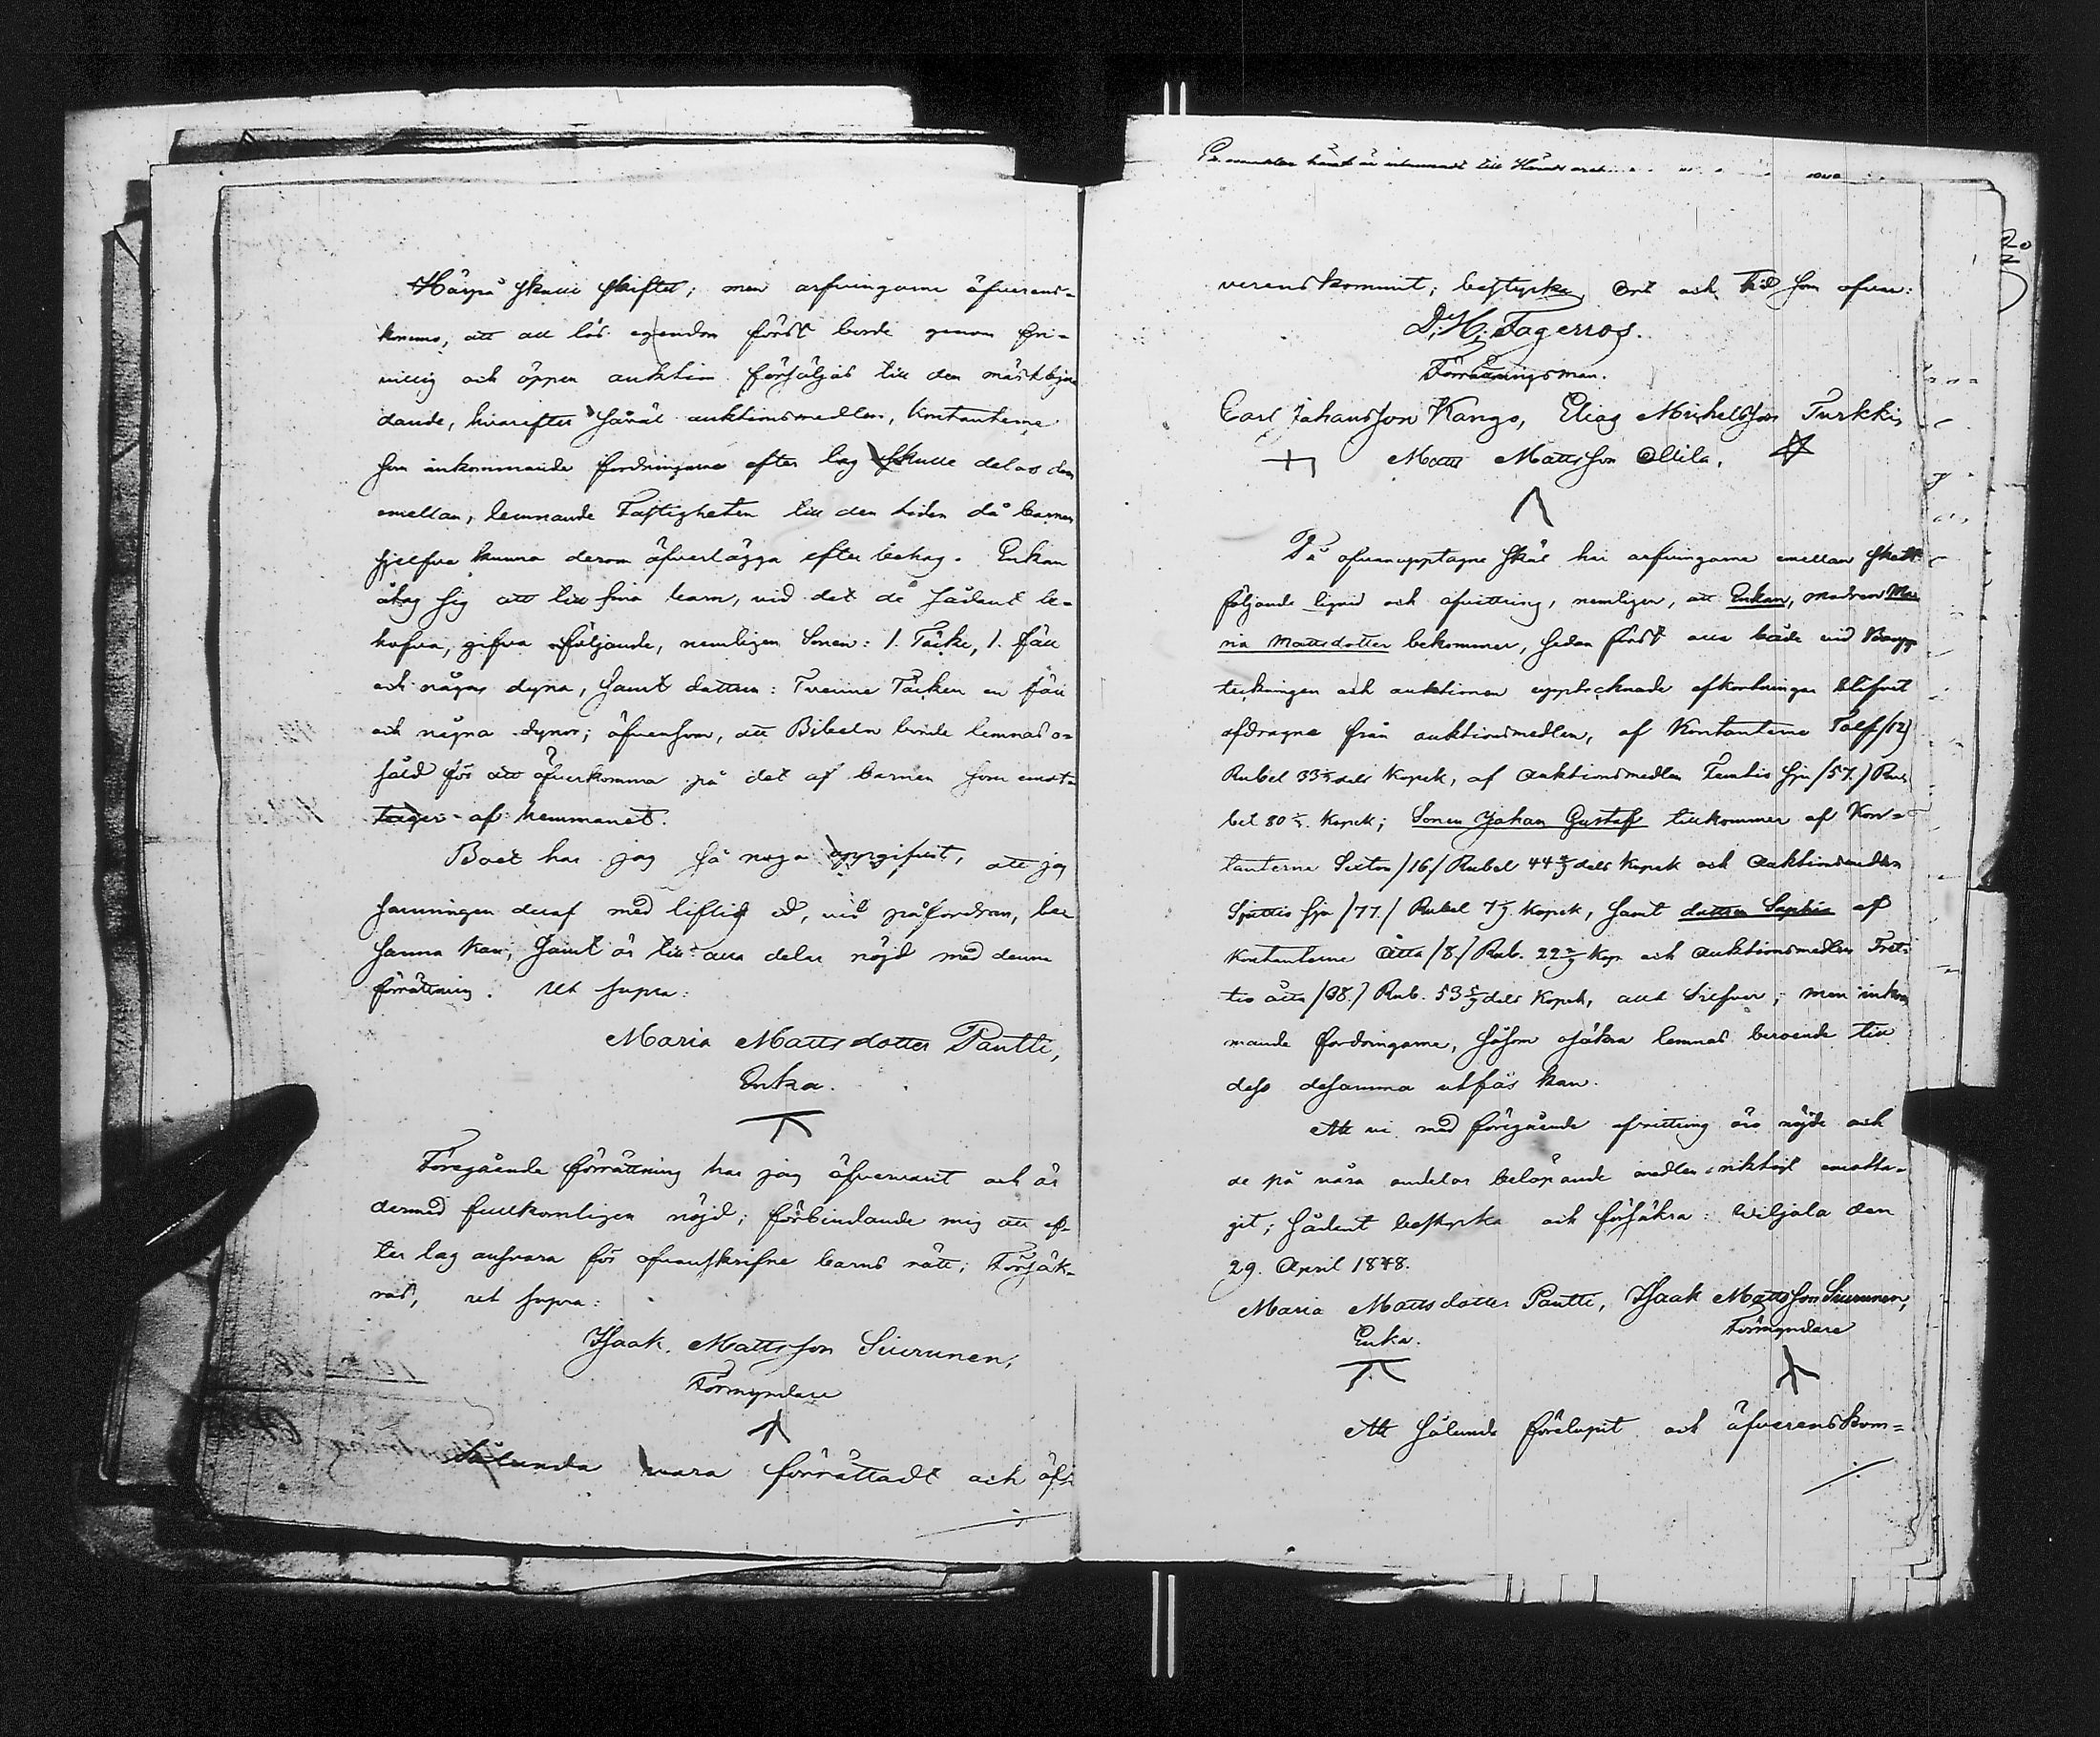 Härpå skulle skiftet; men arfvingarne öfverens-
kommo, att all lös egendom först borde genom fri-
villig och öppen auktion försäljas till den mästbju-
dande, hvarefter såväl auktionsmedlen, kontanterne
som inkommande fordringarne efter lag skulle delas dem
emellan, lemnande Fastigheten till den tiden då barnen
sjelfva kunna derom öfverlägga efter behag. Enkan
åtog sig att till sina barn, vid det de sådant be-
höfva, gifva följande, nemligen Sonen: 1. Täcke, 1. fäll
och några dyna, samt dottren: Tvenne Täcken en fäll
och några dynor; äfvensom, att Bibeln borde lemnas o-
såld för att öfverkomma på det af barnen som emot-
tager af hemmanet.
Boet har jag så noga uppgifvit, att jag
sanningen deraf med liflig ed, vid påfordran, be-
sanna kan, samt är till alla delar nöjd med denna
förrättning. Ut supra:
Maria Mattsdotter Pantti,
Enka.
Föregående förrättning har jag öfvervarit och är
dermed fullkomligen nöjd; förbindande mig att ef-
ter lag ansvara för ofvanskrifne barns rätt; Försäk-
ras, ut supra:
Isaak Mattsson Siurunen,
Förmyndare
Sålunda vara förrättadt och öf-
verenskommit; bestyrka, Ort och tid som ofvan:
D. H. Fagerroos.
Förrättningsman.
Carl Johansson Kangs, Elias Michelsson Turkki,
Matts Mattsson Ollila.
På ofvanupptagne skäl har arfvingarne emellan skett
följande liqvid och afvittring, nemligen, att Enkan, modren Ma-
ria Mattsdotter bekommer, sedan först alla både vid Boupp-
teckningen och auktionen upptecknade afkortningar blifvit
afdragne från auktionsmedlen, af Kontanterne Tolf /12/
Rubel 33 dels Kopek, af Auktionsmedlen Femtio sju /57./ Ru-
bel 80 Kopek; Sonen Johan Gustaf tillkommer af Kon-
tanterne Sexton /16/ Rubel 44 dels Kopek och Auktionsmedlen
Sjuttio sju /77./ Rubel 7 Kopek, samt dottren Sophia af
Kontanterne Åtta /8./ Rub. 22 Kop. och Auktionsmedlen Tret-
tio åtta /38./ Rub. 53 dels Kopek, allt Silfver; men inkom-
mande fordringarne, såsom osäkra lemnas beroende till
dess desamma utfås kan.
Att vi med föregående afvittring äro nöjde och
de på våra andelar belöpande medlen riktigt emotta-
git; sådant bestyrka och försäkra: Wiljala den
29. April 1848.
Maria Mattsdotter Pantti, Isaak Mattsson Siurunen,
Enka. Förmyndare
Att sålunda förelupit och öfverenskom-